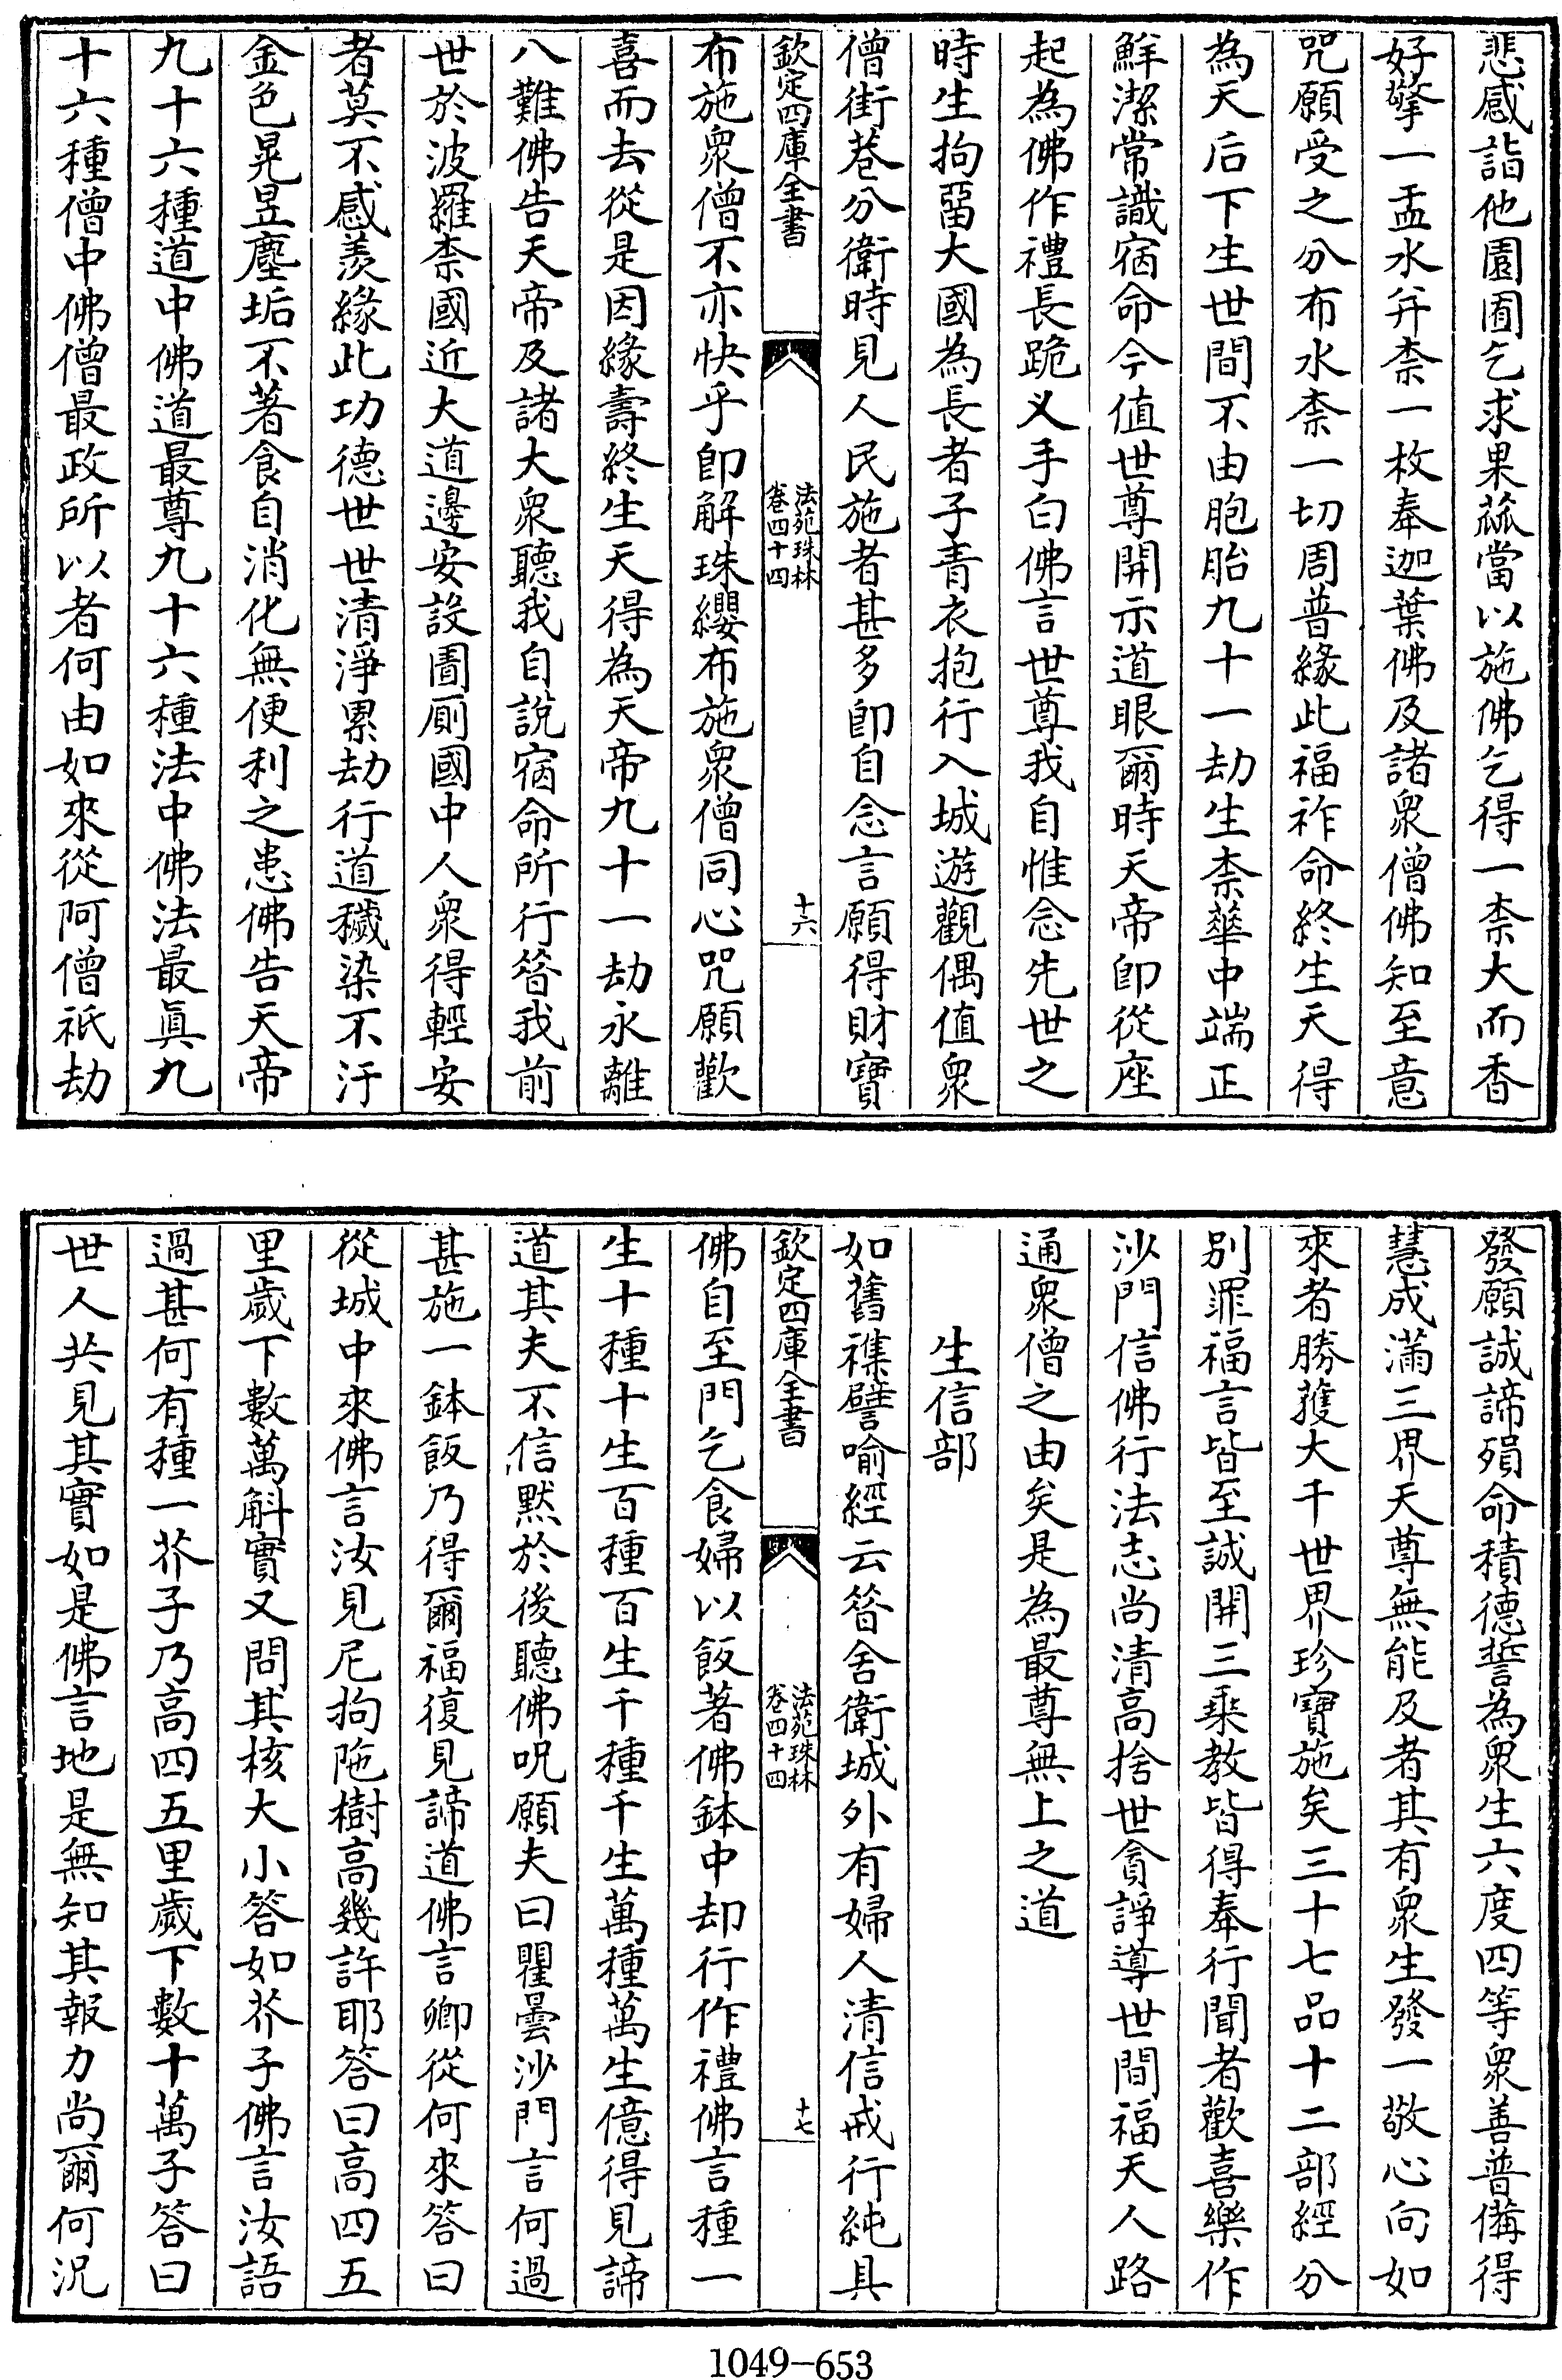 悲感詣他園圃乞求果蓏當以施佛乞得一柰大而香
好擎一盂水幷柰一枚奉迦葉佛及諸衆僧佛知至意
咒願受之分布水柰一切周普緣此福祚命終生天得
為天后下生世間不由胞胎九十一劫生柰華中端正
鮮潔常識宿命今值世尊開示道眼爾時天帝即從座
起為佛作禮長跪义手白佛言世尊我自惟念先世之
時生拘留大國為長者子青衣抱行入城遊觀偶值衆
僧街巷分衛時見人民施者甚多即自念言願得財寶
欽定四庫全書
法苑珠林
卷四十四
十六
布施衆僧不亦快乎即解珠纓布施衆僧同心咒願歡
喜而去從是因緣壽終生天得為天帝九十一劫永離
八難佛告天帝及諸大衆聽我自說宿命所行昝我前
世於波羅柰國近大道邊安設圊廁國中人衆得輕安
者莫不感羨緣此功德世世清淨累劫行道穢染不汙
金色晃昱塵垢不著食自消化無便利之患佛告天帝
九十六種道中佛道最尊九十六種法中佛法最眞九
十六種僧中佛僧最政所以者何由如來從阿僧祇劫
發願誠諦殞命積德誓為衆生六度四等衆善普備得
慧成滿三界天尊無能及者其有衆生發一敬心向如
來者勝獲大千世界珍寶施矣三十七品十二部經分
別罪福言皆至誠開三乗教皆得奉行聞者歡喜樂作
沙門信佛行法志尚清高捨世貪諍導世間福天人路
通衆僧之由矣是為最尊無上之道
生信部
如舊襍譬喻經云昝舍衛城外有婦人清信戒行純具
欽定四庫全書
法苑珠林
卷四十四
十七
佛自至門乞食婦以飯著佛鉢中却行作禮佛言種一
生十種十生百種百生千種千生萬種萬生億得見諦
道其夫不信默於後聽佛呪願夫曰瞿曇沙門言何過
甚施一鉢飯乃得爾福復見諦道佛言卿從何來答曰
從城中來佛言汝見尼拘陁樹高幾許耶答曰高四五
里歲下數萬斛實又問其核大小答如芥子佛言汝語
過甚何有種一芥子乃高四五里歲下數十萬子答曰
世人共見其實如是佛言地是無知其報力尚爾何況
1049-653